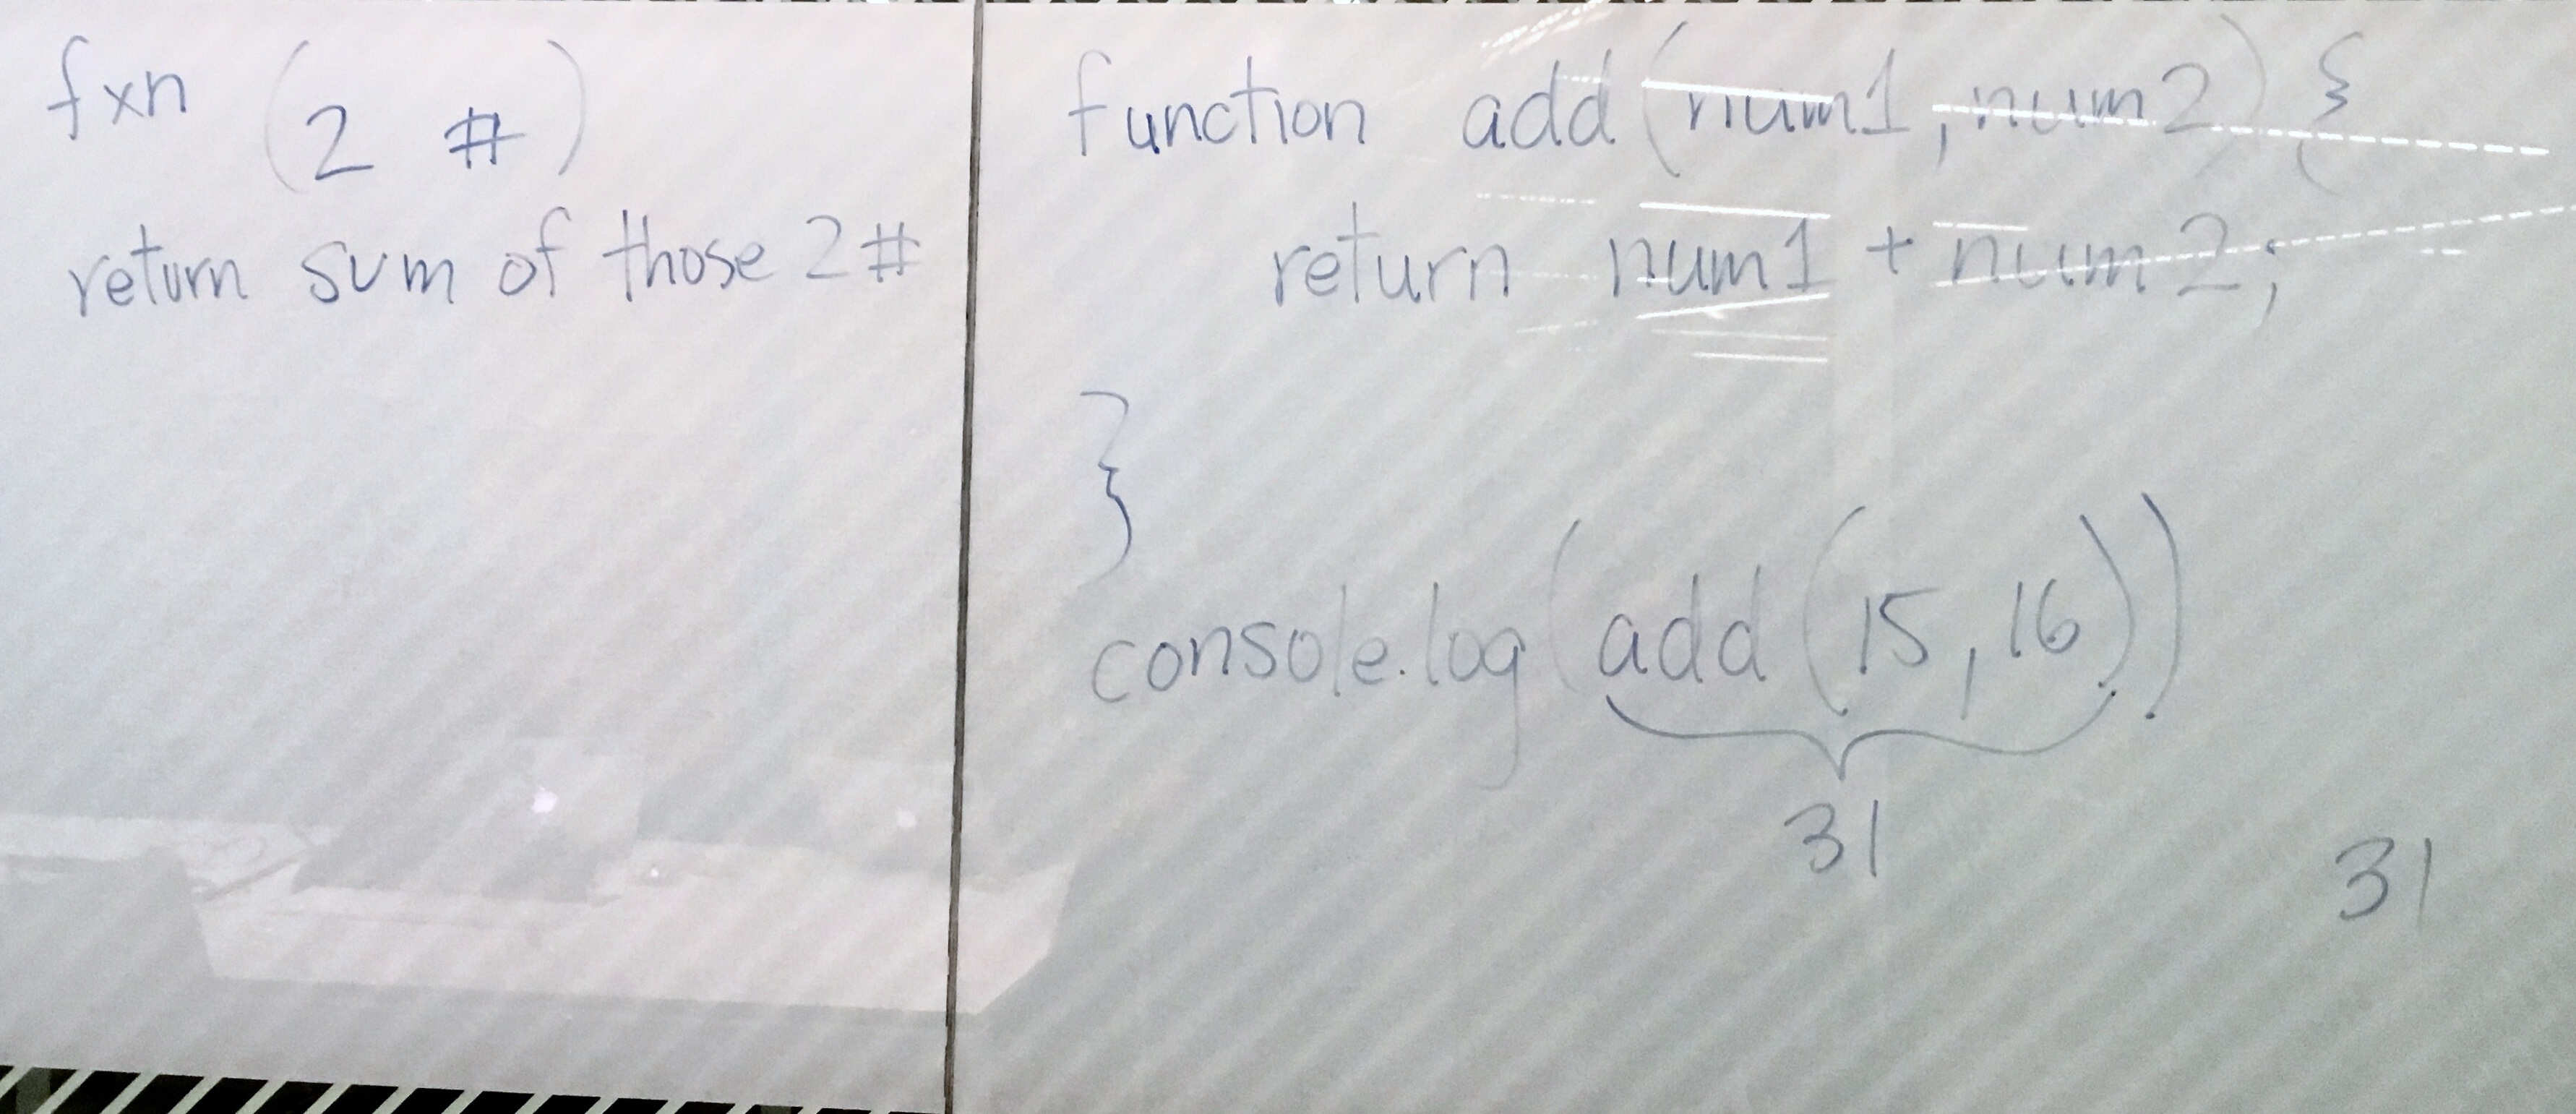 fxn (2 #)
return sum of those 2 #
function add (num1, num2) {
return num1 + num2;
}
console.log (add (15, 16))
31
31